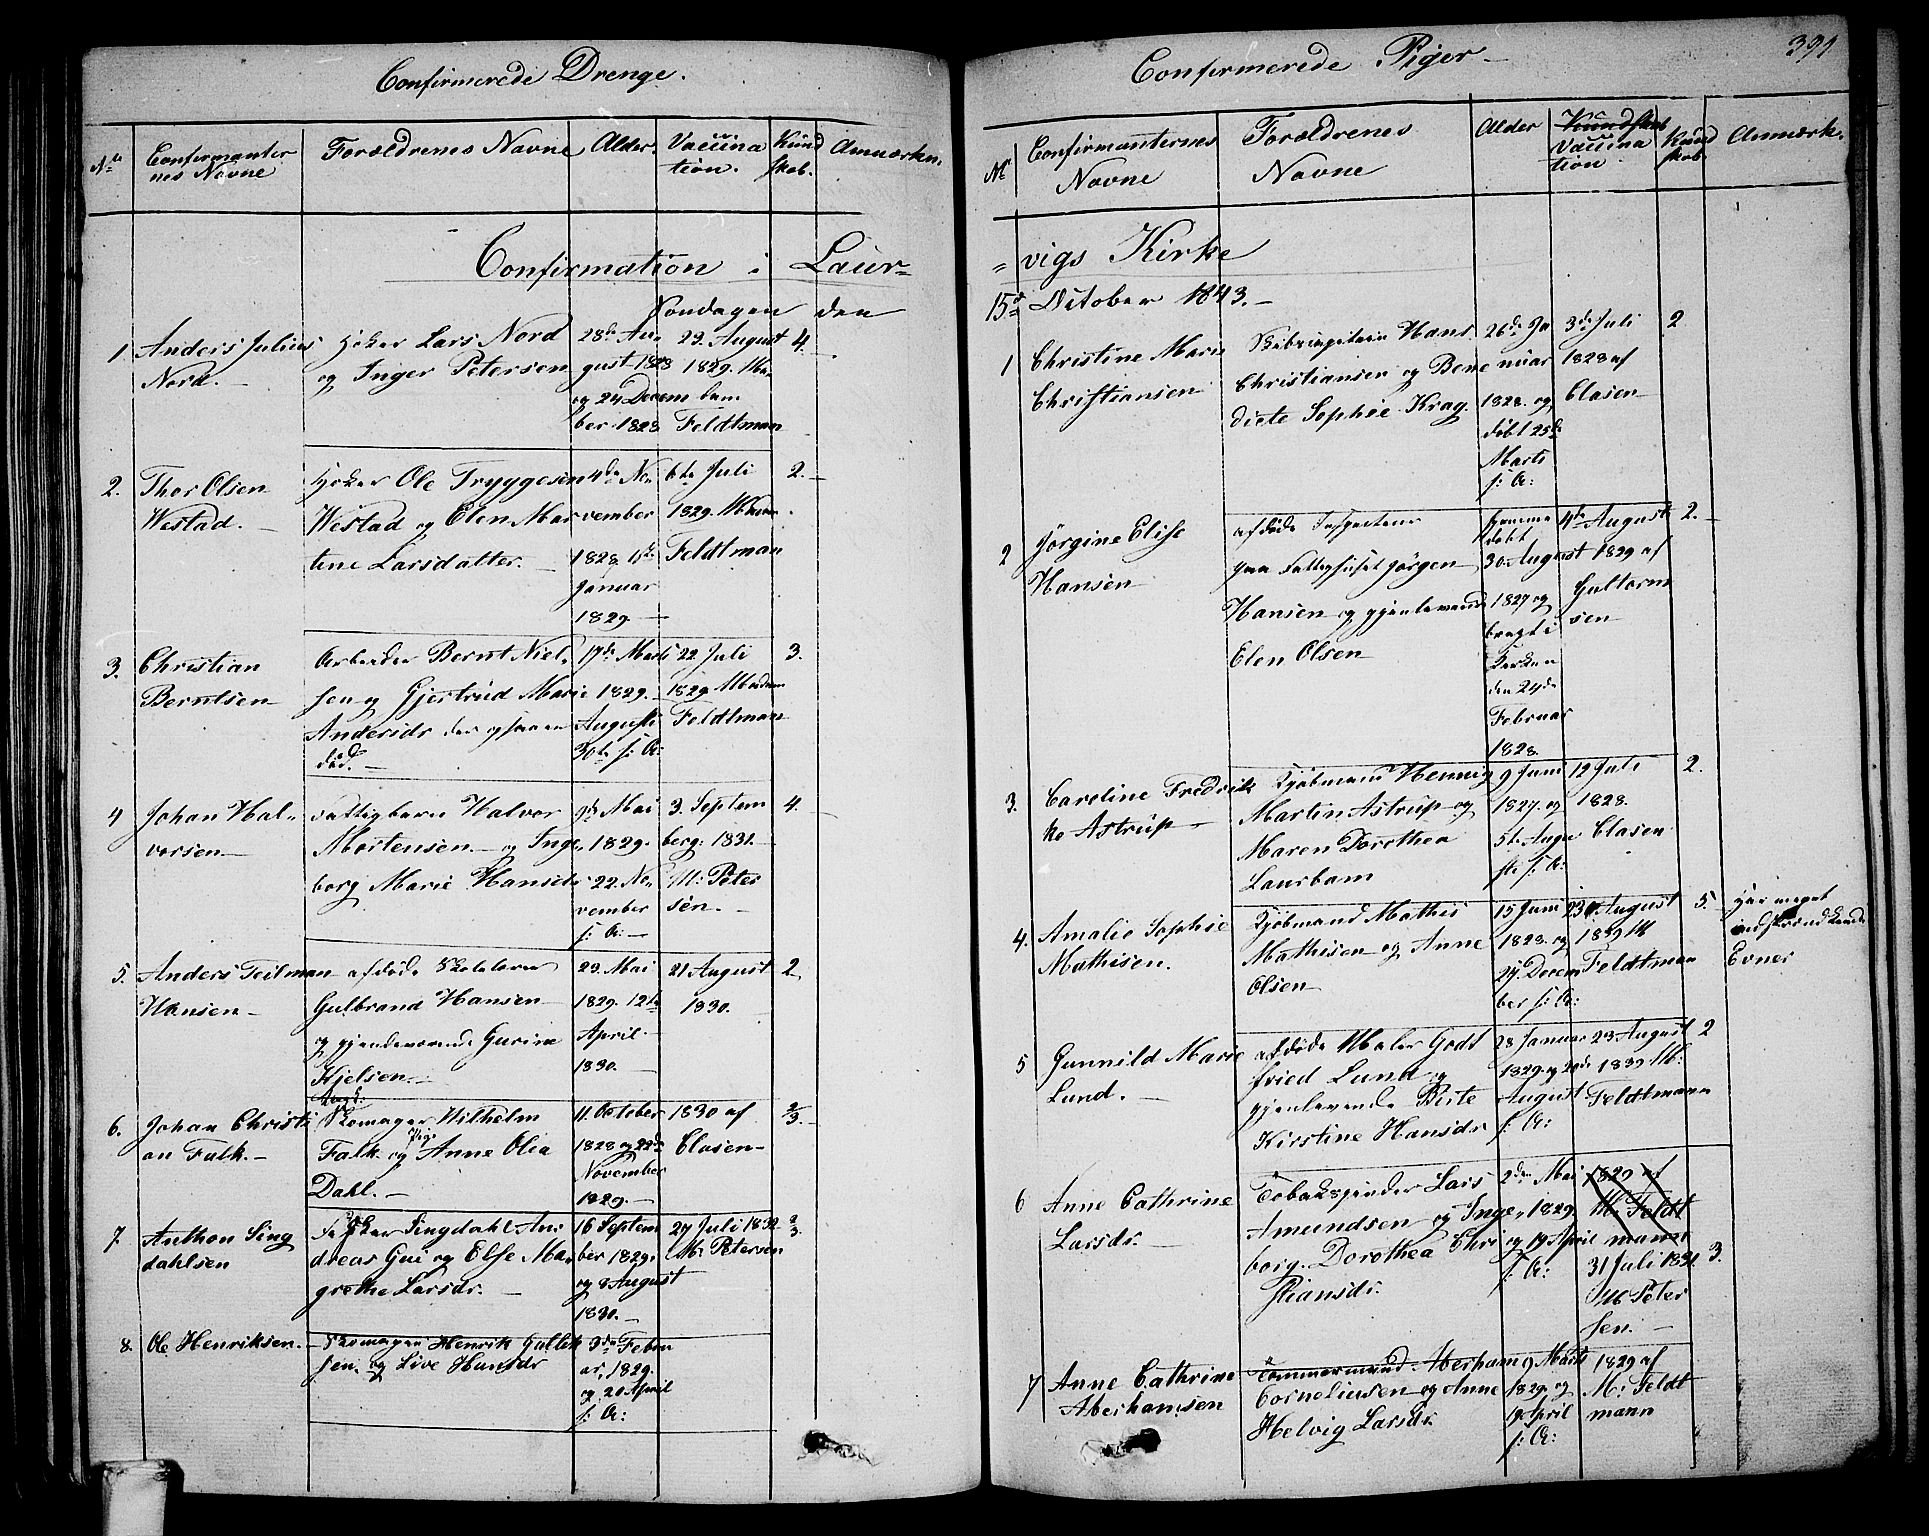 Confirmerede Drenge.
No
Confirmanter
nes Navne
Forældrenes Navne
Alder.
Vaccina
tion.
Kund
skab.
Anmærkn.
Confirmation i Laur-
Søndagen den
1. Anders Julius
Nord.
Høker Lars Nord
og Inger Petersen
28de Au-
gust 1828
og 24 Decem
ber 1828
29. August
1829. Ma-
dam
Feldtman
4.
2. Thor Olsen
Westad.
Høker Ole Tryggesen
Westad og Elen Mar
tine Larsdatter.
4de No-
vember
1828. 11te
Januar
1829
6te Juli
1829. Madam
Feldtman
2.
3. Christian
Berntsen
Arbeider Bernt Niel-
sen og Gjertrud Marie
Andersdr
død.
17de Marts
1829.
August
30te s: A:
22 Juli
1829. Madam
Feldtman
3.
4 Johan Hal-
vorsen
Fattigbarn Halvor
Mortensen og Inge-
borg Marie Hansdr
9de Mai
1829.
22. No-
vember
s: A:
3. Septem
berg: 1831.
M: Peter
sen.
4.
5. Anders Teilman
Hansen
afdøde Skolelærer
Gulbrand Hansen
og gjenlevende Gurine
Kjelsen.
23. Mai
1829. 12te
April.
1830.
21 August
1830.
2
6. Johan Christi
an Falk.
Ungk:
Skomager Wilhelm
Falk og Pige Anne Olea
Dahl.
11. October
1828 og 22de
November
1829.
1830 af
Clasen
2/3.
7. Anthon Sing
dahlsen
Fisker Singdahl An-
dreas Gui og Else Mar
grethe Larsdr.
16 Septem
ber 1829.
og 8 August
1830.
27 Juli 1832
M. Petersen
2/3.
8. Ole Henriksen.
Skomager Henrik Gullik
sen. og Live Hansdr
3de Febru
ar, 1829.
og 20 April
s: A:
Confirmerede Piger
391
No
Confirmanternes
Navne
Forældrenes
Navne
Alder
Kundskab
Vaccina
tion
Kund
skab.
Anmærk.
vigs Kirke
15de October 1843.
1 Christine Marie
Christiansen
Skibscapitain Hans
Christiansen og Bene
dicte Sophie Krag.
26de Ja
nuar
1828. og
døbt 25de
Marts
s: A:
3de Juli
1828 af
Clasen
2
2 Jørgine Elise
Hansen
afdøde Inspecteur
paa Fattighuset Jørgen
Hansen og gjenlevende
Elen Olsen
hjemme
døbt
30. August
1827 og
bragt i
Kirken
den 24de
Februar
1828.
4de August
1829 af
Guttorm
sen
2.
3. Caroline Fredrik
ke Astrup
Kjøbmand Hennig
Martin Astrup og
Maren Dorothea
Laurbam
9 Juni
1827. og
5te Augu
sti s: A:
12 Juli
1828.
Clasen
2.
4. Amalie Sophie
Mathisen.
Kjøbmand Mathis
Mathisen og Anne
Olsen
15 Juni
1828. og
27. Decem
ber s: A:
23 August
1839 M
Feldtman
5.
har meget
indskrænkede
Evner
5 Gunnild Marie
Lund.
afdøde Maler Godt
fried Lund og
gjenlevende Birte
Kirstine Hansdr
28 Januar
1829. og 20de
August
s: A:
23 August
1839 M:
Feldtmann
2
6 Anne Cathrine
Larsdr.
Tobakspinder Lars
Amundsen og Inge-
borg. Dorothea Chri
stiansdr.
2den Mai
1829.
og 19 April
s: A:
1829 af
M: Feldt
mann
31 Juli 1831.
M Peter
sen.
3.
7 Anne Cathrine
Aberhamsen
Tømmermand Aberham
Corneliusen og Anne
Helvig Larsdr.
9 Marts
1829. og
19 April
s: A:
1829 af
M: Feldt
mann